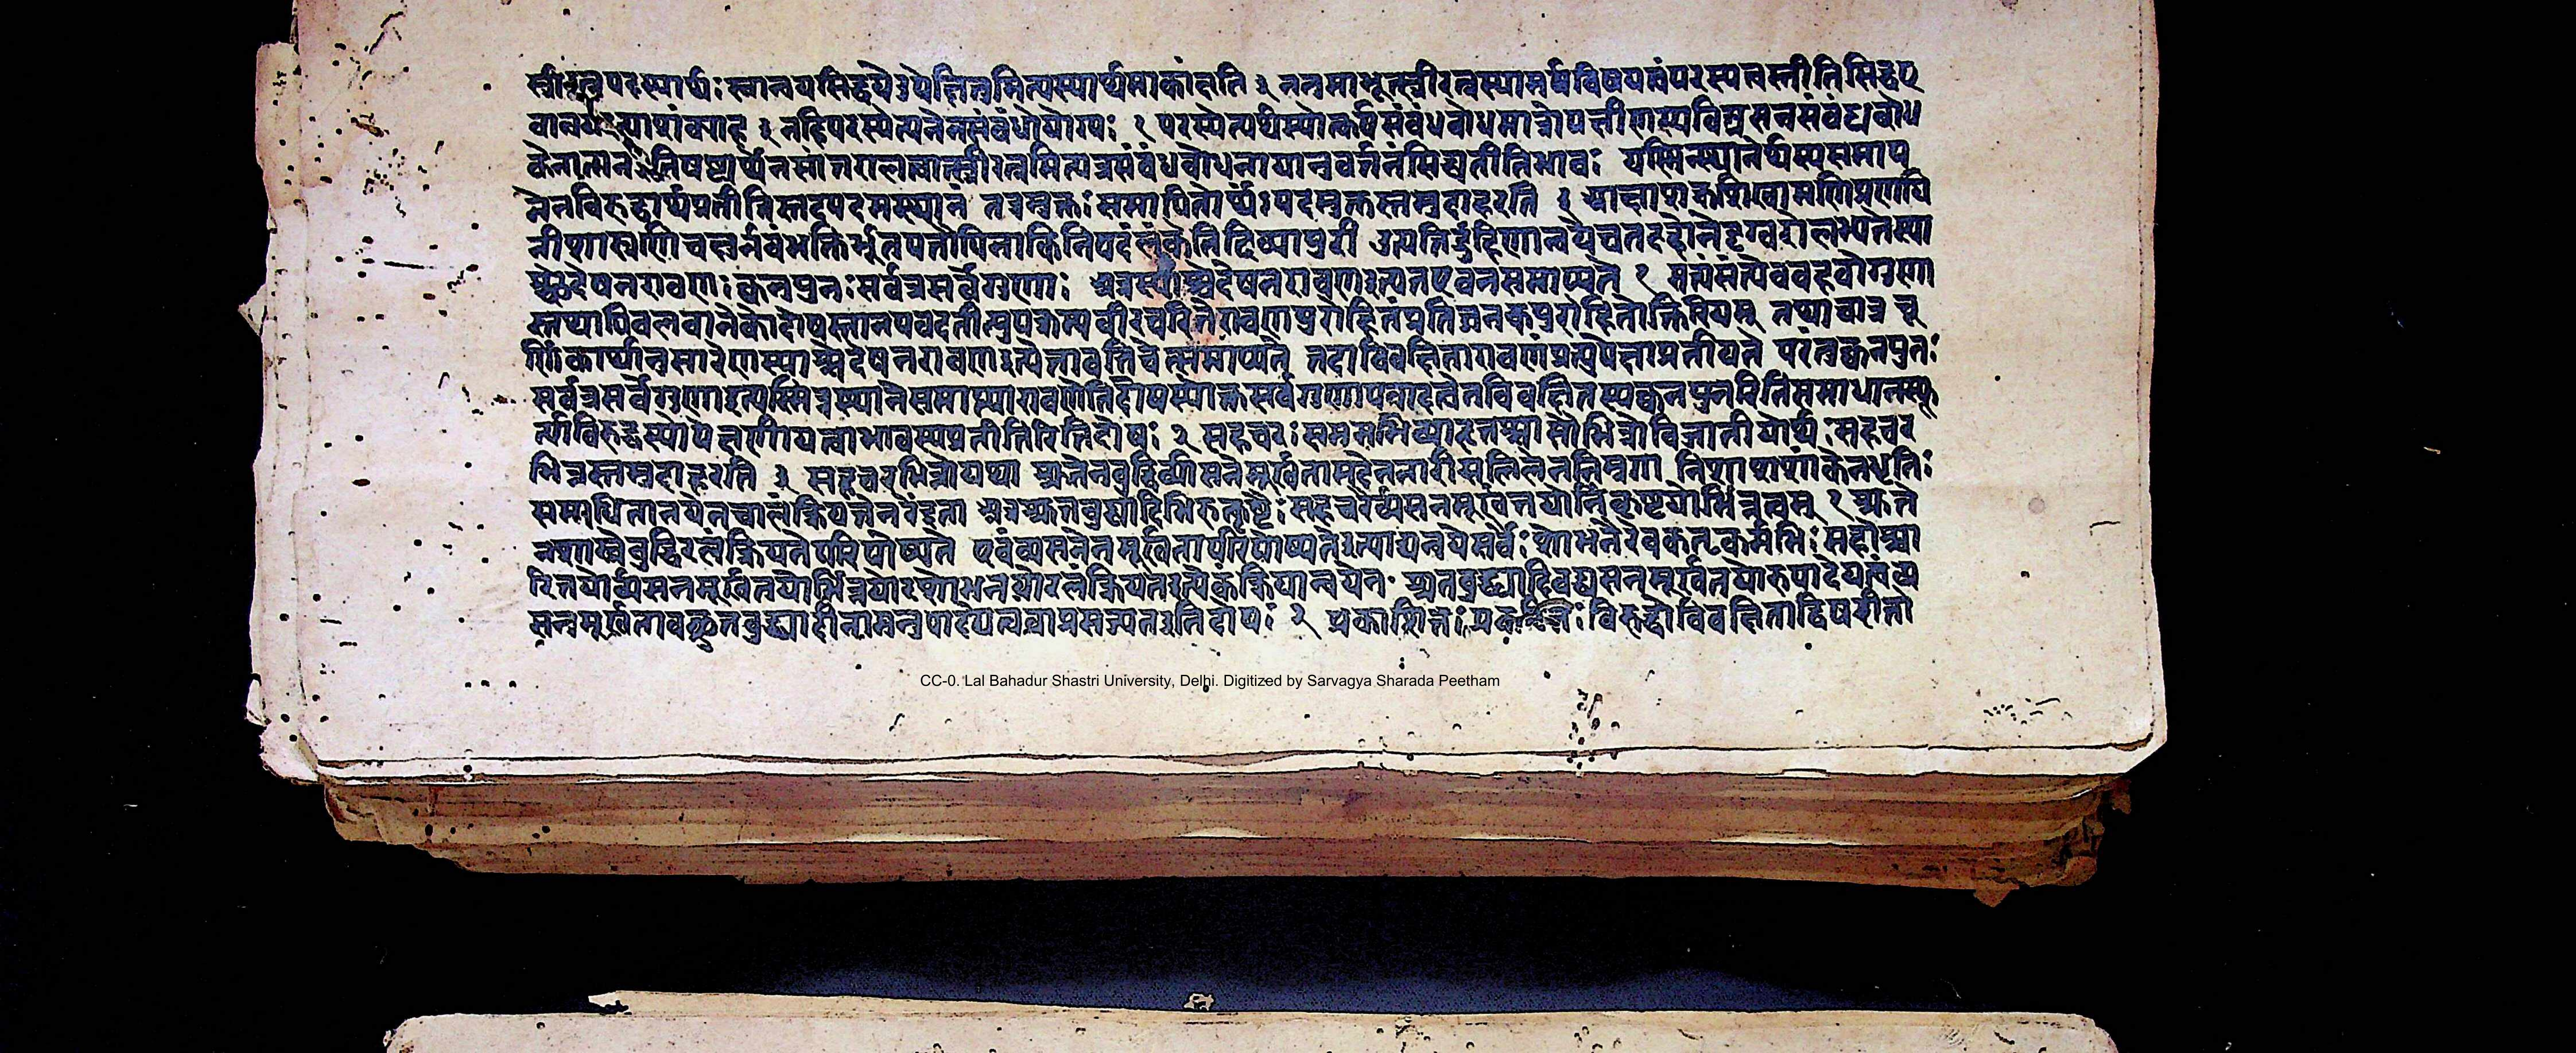 स्त्रीरत्नपदस्यार्थः स्वान्वयसिद्धये उपेक्षितुमित्यस्यार्थमाकांक्षति ३ ननु माभूत्स्त्रीरत्नस्यामर्षविषयत्वं परस्य तस्त्रीति सिद्धए
नहि परस्येत्यनेन संबंधो योग्यः १ परस्येत्यर्थस्योत्कर्षसंबंधबोधमात्रोपक्षीणस्य
स्त्रीरत्नमित्यत्र संबंधबोधनायानुवर्त्तनं सिद्ध्यतीतिभावः यस्मिन्स्थानेर्थस्य समाप
नेन विरुद्धार्थप्रतीतिस्तदपदमस्थानं तत्रमुक्तः समापितोर्थः पदमुक्तस्तमुदाहरति १ आज्ञाशक्रशिखामणिप्रणयि
नीशास्त्राणिचक्षुर्नवं भक्तिर्भूतपतौपिनाकिनिपदं लंकेतिदिव्यापुरी उत्पत्तिर्द्रुहिणान्वयेचतदहोनेदृग्वरोलभ्यतेस्या
च्चेदेषनरावणः क्वनुपुनः सर्वत्रसर्वेगुणाः अत्रस्याच्चेदेषनरावणइत्यतएवनसमाप्यते १ सत्यंसंत्येवबहवोगुणा
स्तथापिबलवानेकोदोषस्तानपवदतीत्युपक्रम्य वीरचरितेरावणपुरोहितंप्रतिजनकपुरोहितोक्तिरियम् तथाचात्र चू
र्णिकार्थानुसारेणस्याच्चेदेषनरावणइत्येतावतिचेत्समाप्यते तदाविवक्षितारावणंप्रत्युपेक्षाप्रतीयते परंतुक्वनुपुनः
सर्वत्रसर्वेगुणाइत्यस्मिन्नस्थानेसमाप्त्या
त्याविरुद्धस्योपेक्षणीयत्वाभावस्यप्रतीतिरितिदोषः २ सहचरः समभिव्याहृतश्चासौभिन्नोविजातीयोर्थः सहचर
भिन्नस्तमुदाहरति ३ सहचरभिन्नोयथा श्रुतेनबुद्धिर्व्यसनेनमूर्खतामदेननारीसलिलेननिम्नगा निशाशशांकेनधृतिः
समाधिनानयेनचालंक्रियतेनरेंद्रता अत्रश्रुतबुद्ध्यादिभिरुत्कृष्टैः सहचरैर्व्यसनमूर्खतयोर्निकृष्टयोर्भिन्नत्वम् १ श्रुते
नशास्त्रेबुद्धिरलंक्रियतेपरिपोष्यते एवंव्यसनेनमूर्खतापरिपोष्यतेइत्याद्यन्वयेसर्वैः शोभनैरेवकर्तृकर्मभिः सहोच्चा
रितयोर्व्यसनमूर्खतयोर्भिन्नयोरशोभनयोरलंक्रियतइत्येकक्रियान्वयेन श्रुतबुद्ध्यादिवद्व्यसनमूर्खतयोरुपादेयत्वंव्य
सनमूर्खतावच्छ्रुतबुद्ध्यादीनामनुपादेयत्वंवाप्रसज्यतइतिदोषः २ प्रकाशितः विरुद्धोविवक्षिताद्विपरीतो
CC-0. Lal Bahadur Shastri University, Delhi. Digitized by Sarvagya Sharada Peetham